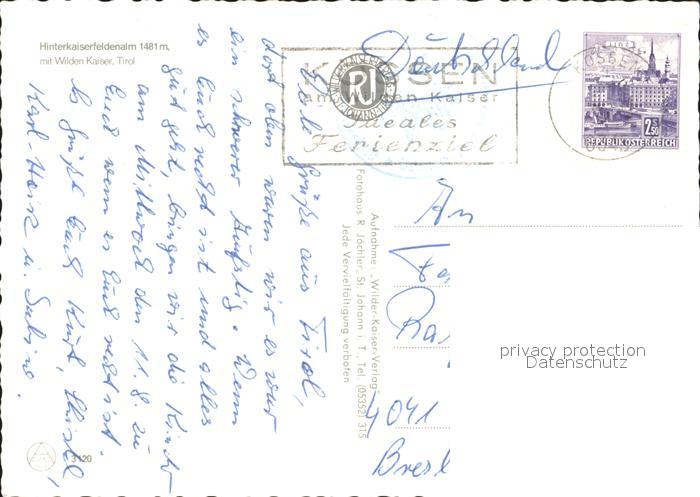 Hinterkaiserfeldenalm 1481 m,
mit Wilden Kaiser, Tirol
Viele Grüße aus Tirol,
dort oben waren wir es war
ein schwerer Aufstieg. Wenn
es Euch recht ist und alles
gut geht, bringen wir die Kinder
am Mittwoch den 11.8. zu
Euch wenn es Euch recht ist.
Es grüßt Euch Kurt, Christel,
Karl-Heinz u. Sabine.
3120
Aufnahme: „Wilder-Kaiser-Verlag"
Fotohaus R. Jöchler, St. Johann i. T., Tel. (05352) 315
Jede Vervielfältigung verboten
KÖSSEN
am Wilden Kaiser
Ideales
Ferienziel
RJ
Deutschland
KÖSSEN
2.50
REPUBLIK ÖSTERREICH
An
Fa
Ra
4041
Bresl
privacy protection
Datenschutz